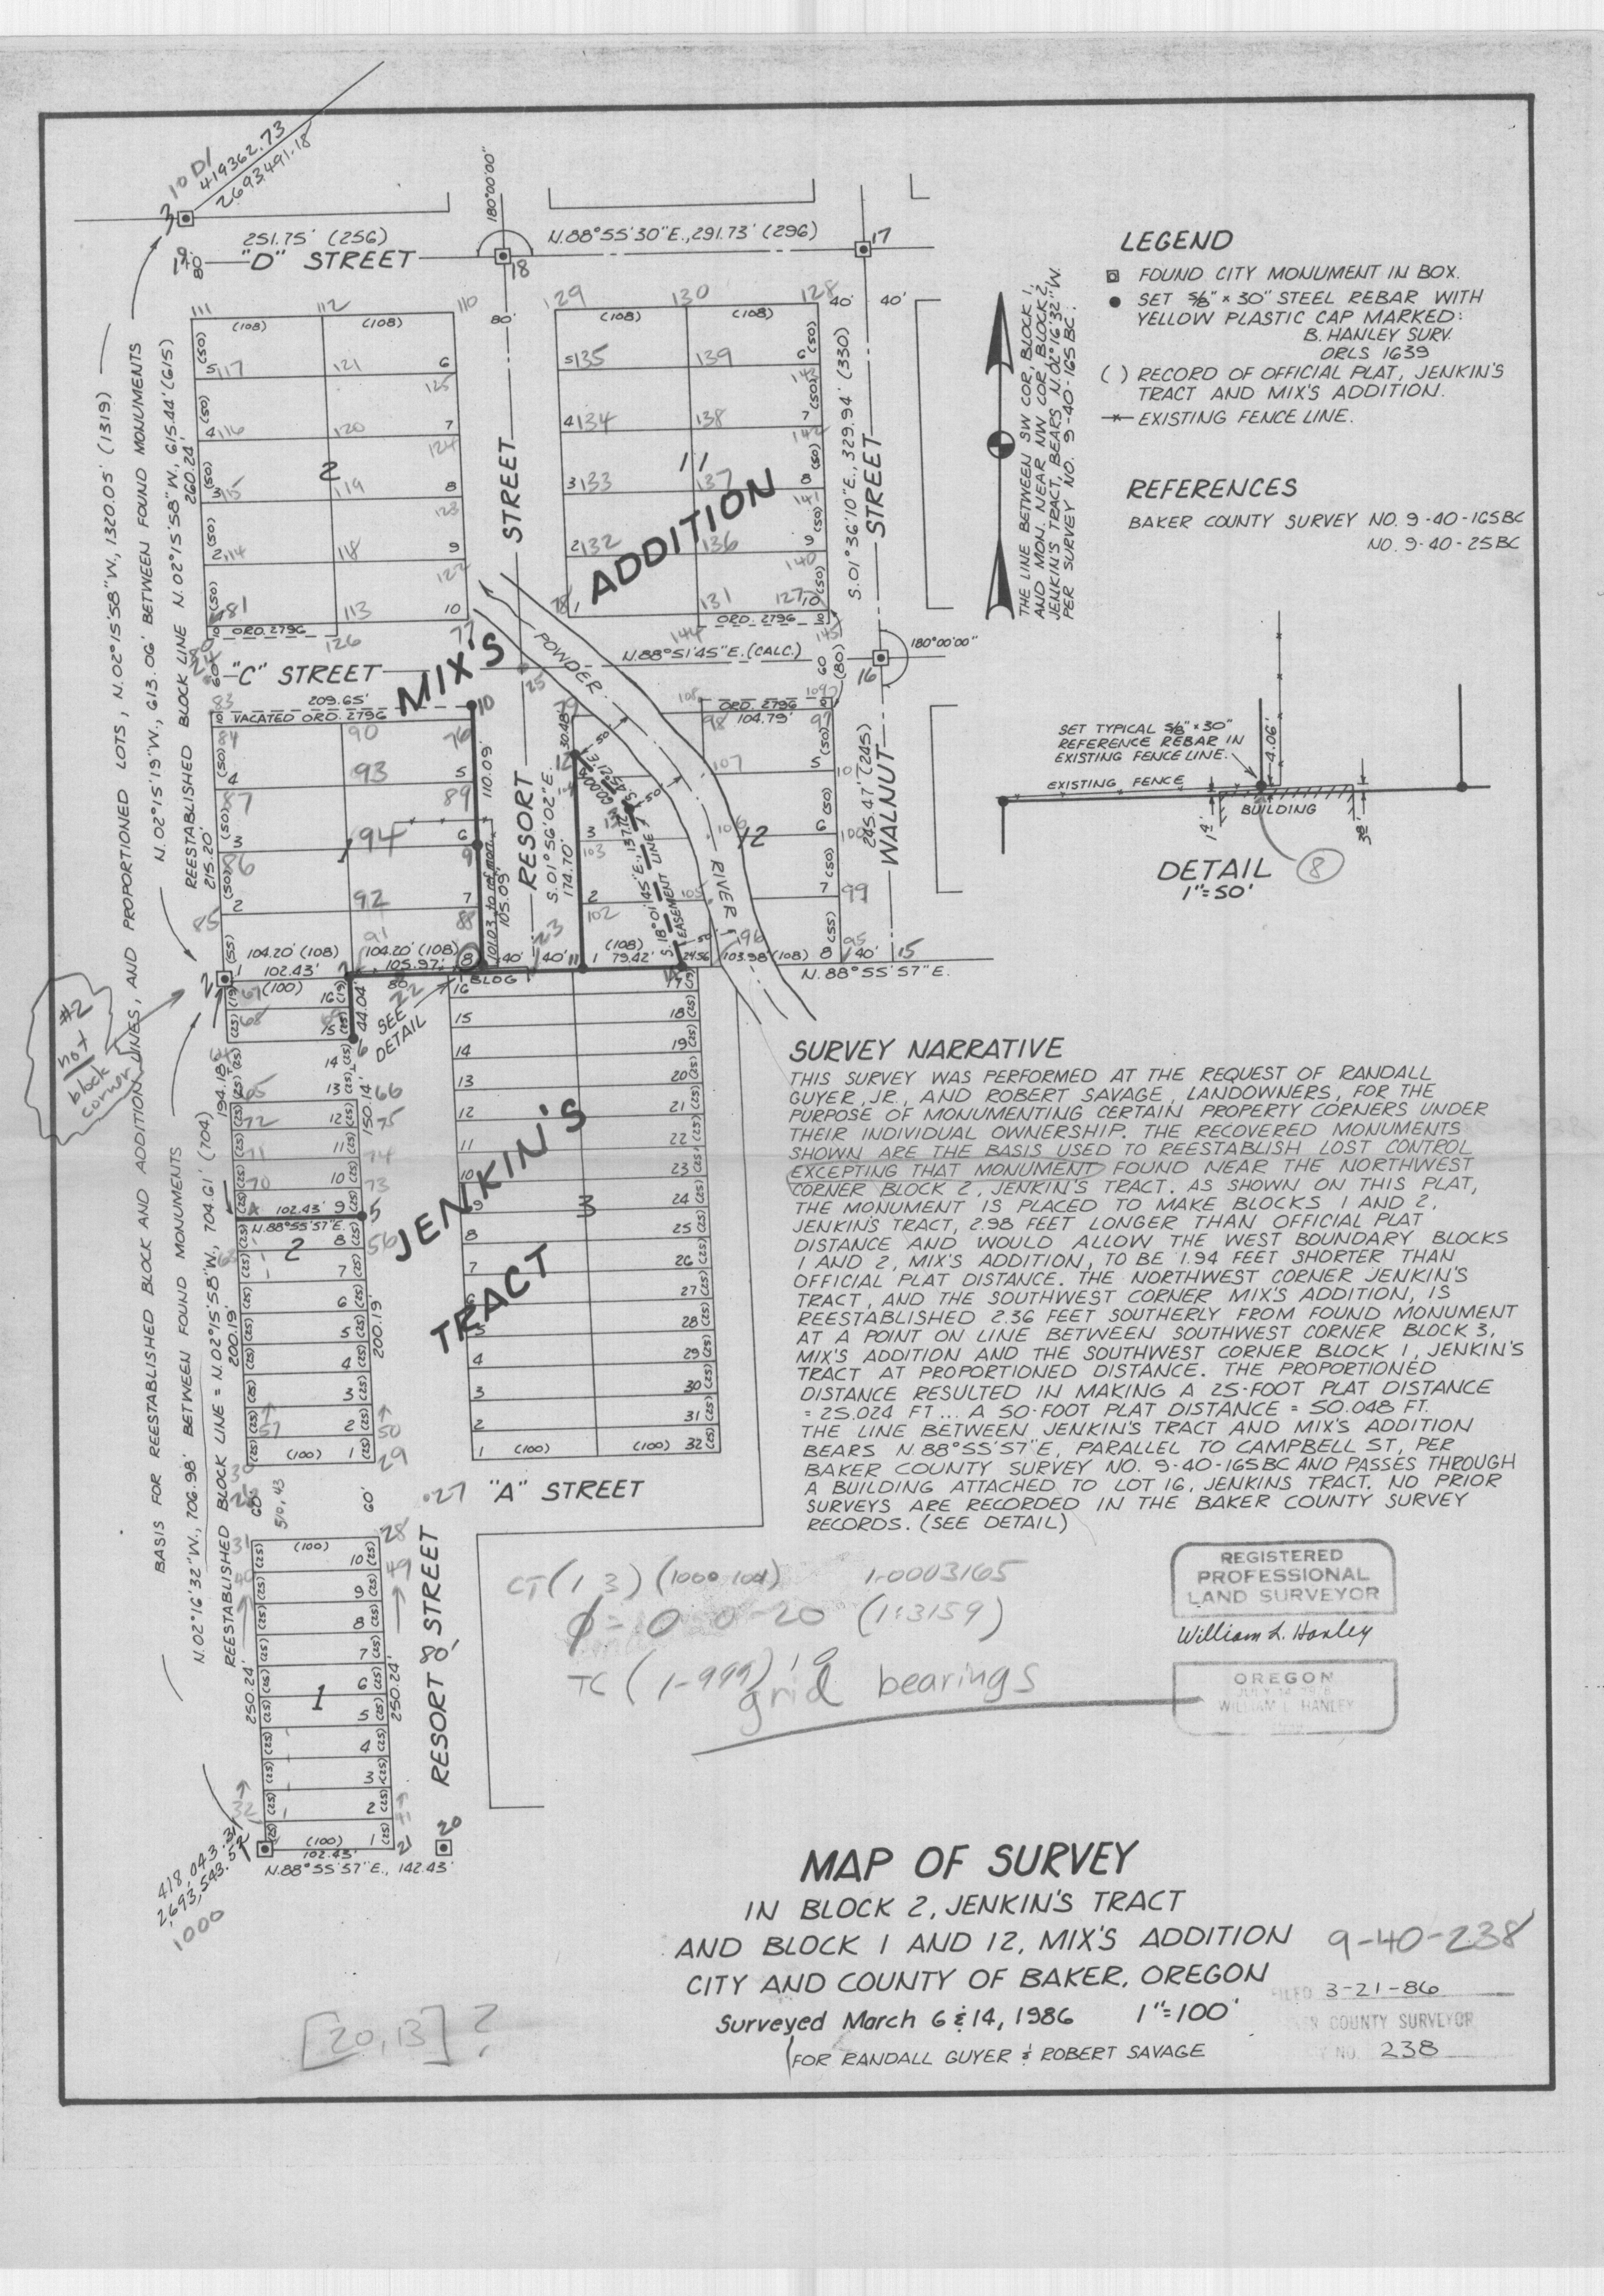 10 D1
419362.73
2693491.18
3
251.75' (256)
"D" STREET
180°00'00"
18
N.88°55'30"E., 291.73' (296)
17
111
112
110
129
130
128
(108)
(108)
(108)
(108)
80'
40'
40'
117
121
6
125
4 116
120
7
124
3 115
2
119
8
123
2 114
118
9
122
81
113
10
ORD. 2796
126
77
5 135
139
6
4 134
138
7
3 133
11
137
8
2 132
136
9
140
131
127
10
ORD. 2796
144
145
STREET
MIX'S
ADDITION
S.01°36'10"E., 329.94' (330)
STREET
260.24'
"C" STREET
N.88°51'45"E. (CALC.)
60
(80)
180°00'00"
16
25
POWDER
RIVER
83
209.65'
10
VACATED ORD. 2796
84
90
76
4
93
5
87
89
3
1
94
6
86
9
2
92
7
85
91
88
110.09'
105.09'
101.03 to ref. mon.
RESORT
S.01°56'02"E.
174.70'
30.48'
79
12
3
103
2
102
S.18°01'45"E., 137.16'
EASEMENT LINE
108
ORD. 2796
109
98
104.79'
97
107
5
106
12
6
105
7
99
245.47' (245)
WALNUT
215.20'
104.20' (108)
104.20' (108)
8
40'
40'
11
1
(108)
79.42'
24.56
103.98' (108)
8
95
40'
15
96
23
N.88°55'57"E.
2
1
102.43'
(100)
105.97'
BLDG
22
SEE
DETAIL
44.04'
6
#2
not
block
corner
194.18'
150.14'
66
75
74
73
102.43'
5
N.88°55'57"E.
56
2
200.19'
200.19'
(100)
29
50
57
JENKIN'S
TRACT
3
16
15
14
13
12
11
10
9
8
7
6
5
4
3
2
1
(100)
(100)
17
18
19
20
21
22
23
24
25
26
27
28
29
30
31
32
27
"A" STREET
60'
60'
31
(100)
28
10
49
9
8
7
6
5
4
3
2
1
1
250.24'
250.24'
32
(100)
102.43'
21
20
N.88°55'57"E., 142.43'
RESORT 80' STREET
418,043.31
2,693,543.52
1000
BASIS FOR REESTABLISHED BLOCK AND ADDITION LINES, AND PROPORTIONED LOTS, N.02°15'58"W., 1320.05' (1319)
N.02°16'32"W., 706.98' BETWEEN FOUND MONUMENTS
N.02°15'19"W., 613.06' BETWEEN FOUND MONUMENTS
REESTABLISHED BLOCK LINE = N.02°15'58"W., 704.61' (704)
REESTABLISHED BLOCK LINE N.02°15'58"W., 615.44' (615)
THE LINE BETWEEN SW COR., BLOCK 1,
AND MON. NEAR NW COR, BLOCK 2,
JENKIN'S TRACT, BEARS N.02°16'32"W.
PER SURVEY NO. 9-40-165BC.
LEGEND
FOUND CITY MONUMENT IN BOX.
SET 5/8" x 30" STEEL REBAR WITH
YELLOW PLASTIC CAP MARKED:
B. HANLEY SURV.
ORLS 1639
( ) RECORD OF OFFICIAL PLAT, JENKIN'S
TRACT AND MIX'S ADDITION.
EXISTING FENCE LINE.
REFERENCES
BAKER COUNTY SURVEY NO. 9-40-165BC
NO. 9-40-25BC
SET TYPICAL 5/8" x 30"
REFERENCE REBAR IN
EXISTING FENCE LINE.
4.06'
EXISTING FENCE
BUILDING
DETAIL
1"=50'
8
SURVEY NARRATIVE
THIS SURVEY WAS PERFORMED AT THE REQUEST OF RANDALL
GUYER, JR., AND ROBERT SAVAGE, LANDOWNERS, FOR THE
PURPOSE OF MONUMENTING CERTAIN PROPERTY CORNERS UNDER
THEIR INDIVIDUAL OWNERSHIP. THE RECOVERED MONUMENTS
SHOWN ARE THE BASIS USED TO REESTABLISH LOST CONTROL
EXCEPTING THAT MONUMENT FOUND NEAR THE NORTHWEST
CORNER BLOCK 2, JENKIN'S TRACT. AS SHOWN ON THIS PLAT,
THE MONUMENT IS PLACED TO MAKE BLOCKS 1 AND 2,
JENKIN'S TRACT, 2.98 FEET LONGER THAN OFFICIAL PLAT
DISTANCE AND WOULD ALLOW THE WEST BOUNDARY BLOCKS
1 AND 2, MIX'S ADDITION, TO BE 1.94 FEET SHORTER THAN
OFFICIAL PLAT DISTANCE. THE NORTHWEST CORNER JENKIN'S
TRACT, AND THE SOUTHWEST CORNER MIX'S ADDITION, IS
REESTABLISHED 2.36 FEET SOUTHERLY FROM FOUND MONUMENT
AT A POINT ON LINE BETWEEN SOUTHWEST CORNER BLOCK 3,
MIX'S ADDITION AND THE SOUTHWEST CORNER BLOCK 1, JENKIN'S
TRACT AT PROPORTIONED DISTANCE. THE PROPORTIONED
DISTANCE RESULTED IN MAKING A 25-FOOT PLAT DISTANCE
= 25.024 FT... A 50-FOOT PLAT DISTANCE = 50.048 FT.
THE LINE BETWEEN JENKIN'S TRACT AND MIX'S ADDITION
BEARS N.88°55'57"E, PARALLEL TO CAMPBELL ST., PER
BAKER COUNTY SURVEY NO. 9-40-165BC AND PASSES THROUGH
A BUILDING ATTACHED TO LOT 16, JENKINS TRACT. NO PRIOR
SURVEYS ARE RECORDED IN THE BAKER COUNTY SURVEY
RECORDS. (SEE DETAIL)
CT (1 3) (1000 104) 1.0003165
φ = 0-0-20 (1:3159)
TC (1-999) 1 0
grid bearings
REGISTERED
PROFESSIONAL
LAND SURVEYOR
William L. Hanley
OREGON
WILLIAM L. HANLEY
MAP OF SURVEY
IN BLOCK 2, JENKIN'S TRACT
AND BLOCK 1 AND 12, MIX'S ADDITION
CITY AND COUNTY OF BAKER, OREGON
Surveyed March 6 & 14, 1986 1"=100'
(FOR RANDALL GUYER & ROBERT SAVAGE
9-40-238
FILED 3-21-86
COUNTY SURVEYOR
NO. 238
[20,13]?